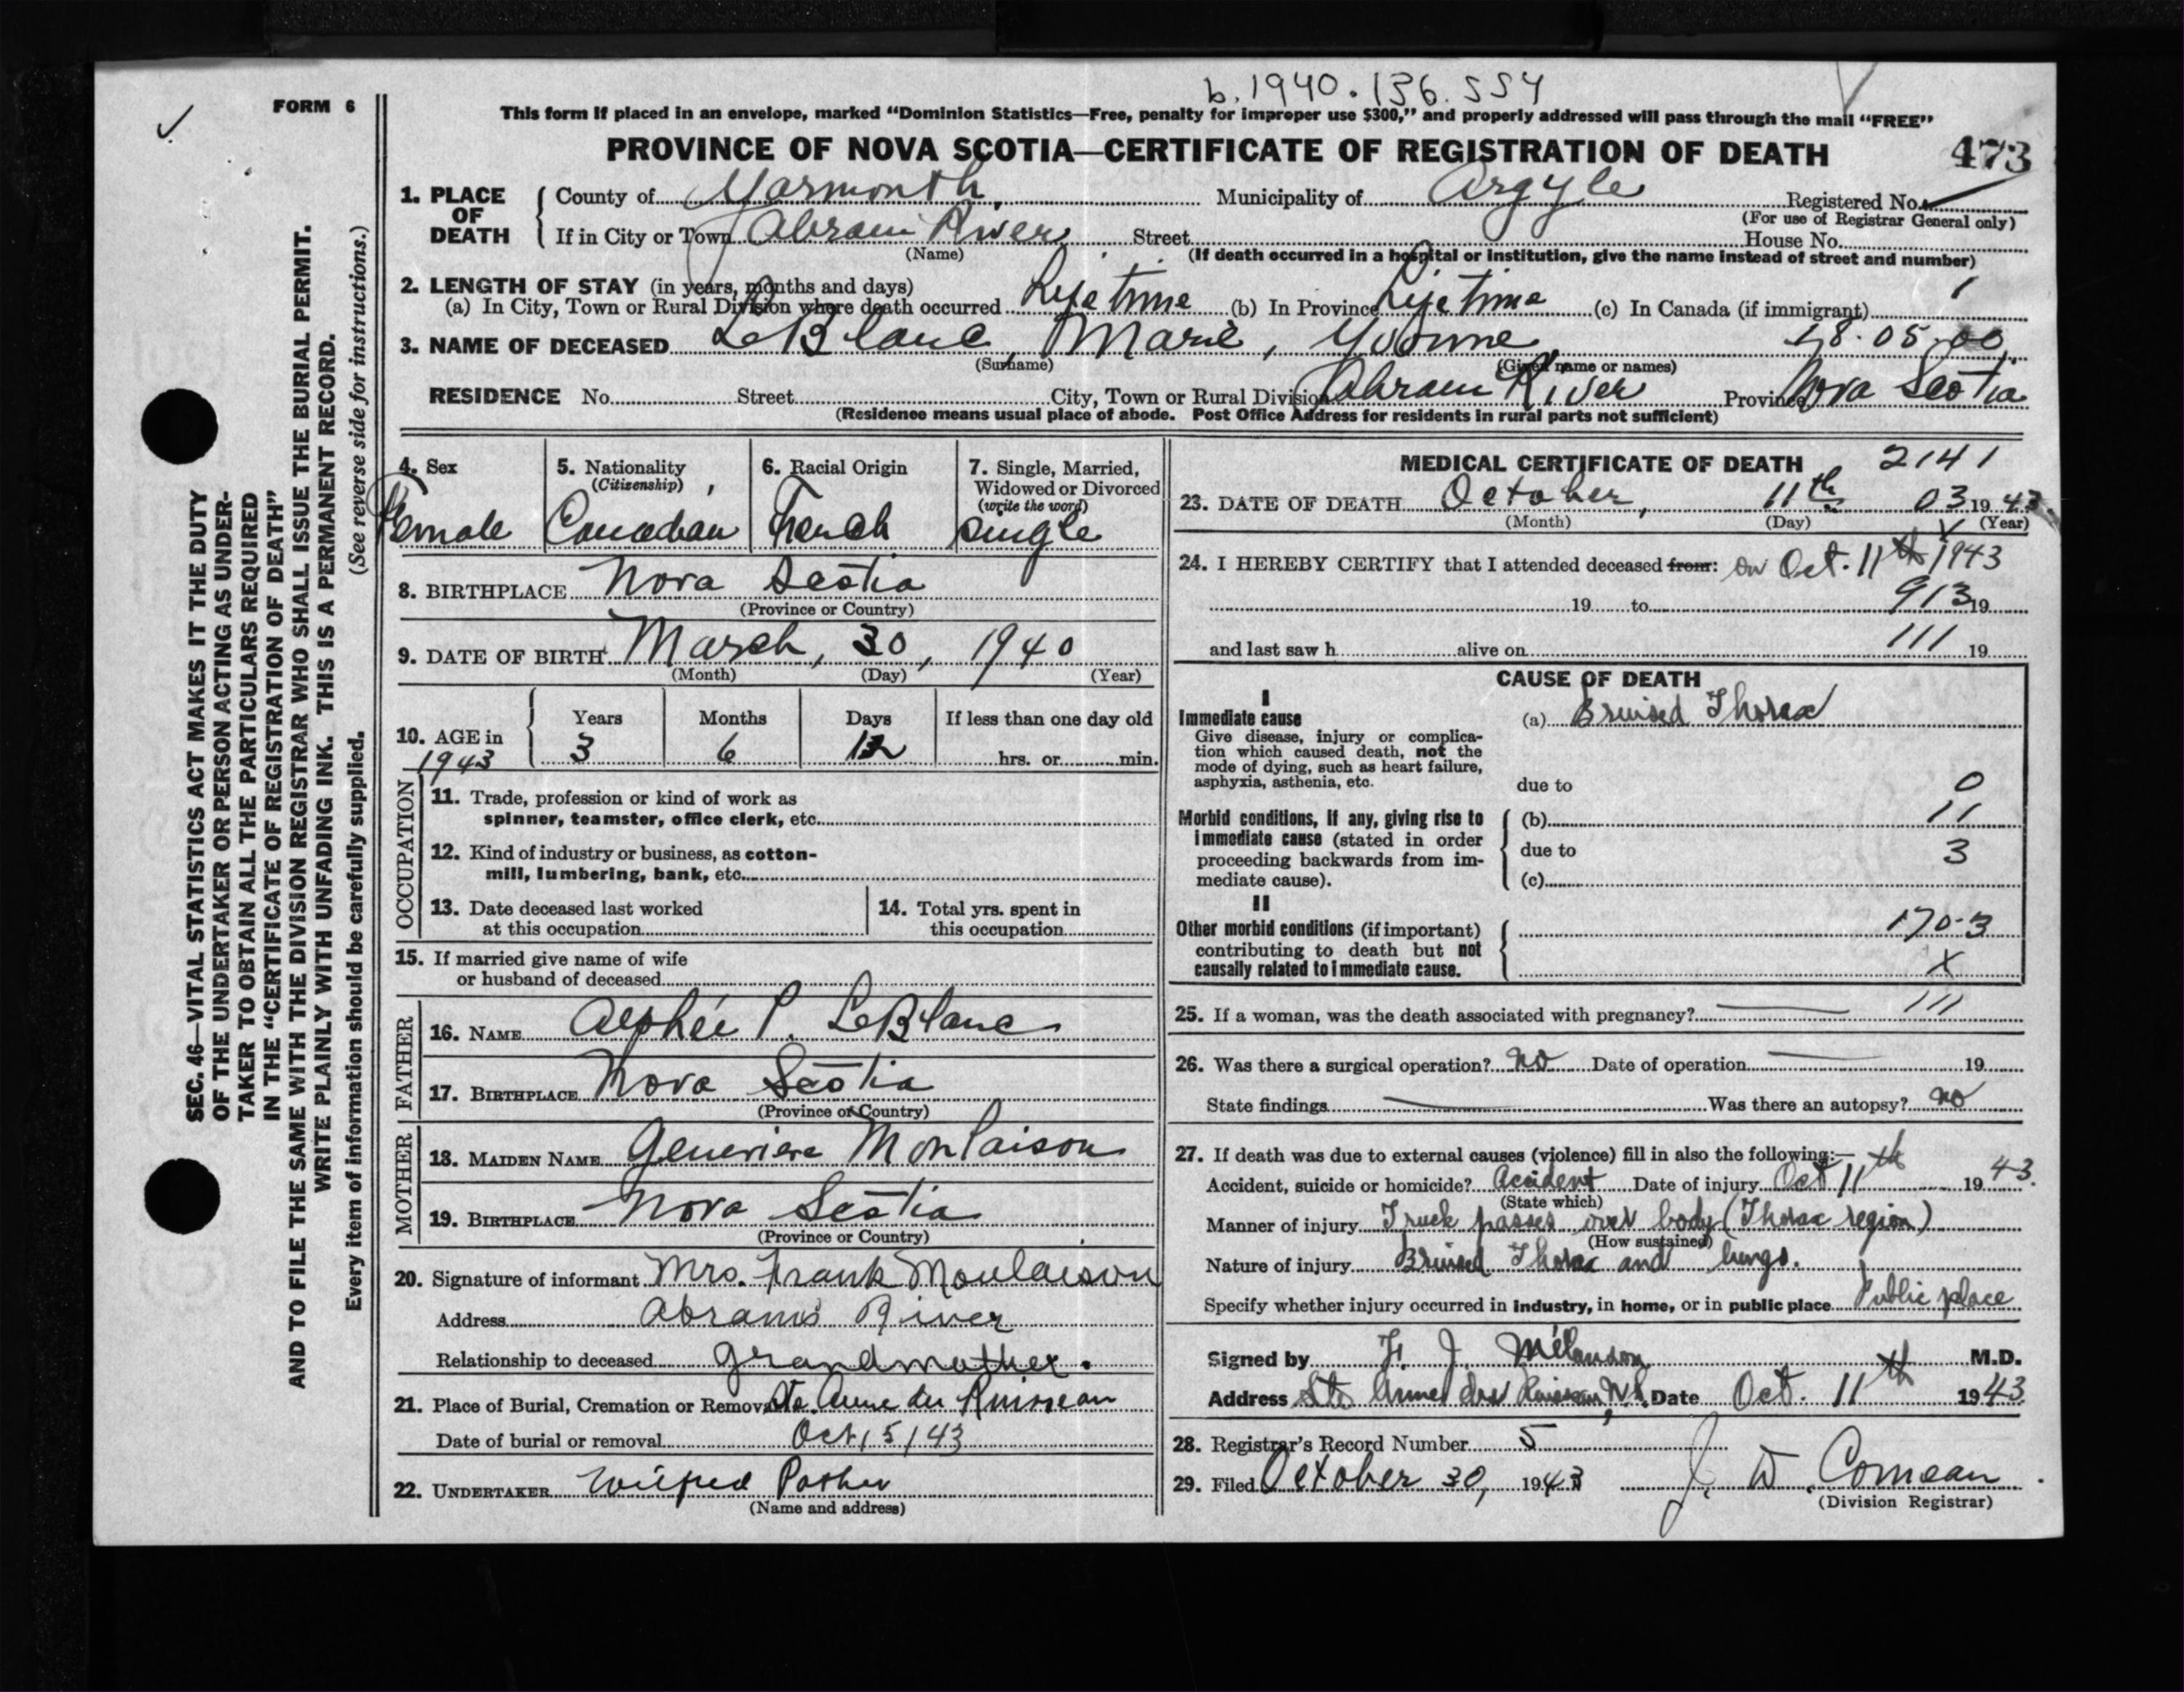 b. 1940. 136. 554
FORM 6
This form if placed in an envelope, marked “Dominion Statistics—Free, penalty for improper use $300,” and properly addressed will pass through the mail “FREE”
PROVINCE OF NOVA SCOTIA—CERTIFICATE OF REGISTRATION OF DEATH 473
1. PLACE OF DEATH
County of Yarmouth Municipality of Argyle Registered No.
(For use of Registrar General only)
If in City or Town Abram River Street House No.
(Name) (If death occurred in a hospital or institution, give the name instead of street and number)
2. LENGTH OF STAY (in years, months and days)
(a) In City, Town or Rural Division where death occurred Life time (b) In Province Life time (c) In Canada (if immigrant)
3. NAME OF DECEASED LeBlanc, Marie, Yvonne 18.05.00
(Surname) (Given name or names)
RESIDENCE No. Street City, Town or Rural Division Abram River Province Nova Scotia
(Residence means usual place of abode. Post Office Address for residents in rural parts not sufficient)
SEC. 46—VITAL STATISTICS ACT MAKES IT THE DUTY
OF THE UNDERTAKER OR PERSON ACTING AS UNDER-
TAKER TO OBTAIN ALL THE PARTICULARS REQUIRED
IN THE “CERTIFICATE OF REGISTRATION OF DEATH”
AND TO FILE THE SAME WITH THE DIVISION REGISTRAR WHO SHALL ISSUE THE BURIAL PERMIT.
WRITE PLAINLY WITH UNFADING INK. THIS IS A PERMANENT RECORD.
Every item of information should be carefully supplied. (See reverse side for instructions.)
4. Sex 5. Nationality 6. Racial Origin 7. Single, Married,
(Citizenship) Widowed or Divorced
(write the word)
Female Canadian French single
8. BIRTHPLACE Nova Scotia
(Province or Country)
9. DATE OF BIRTH March, 30, 1940
(Month) (Day) (Year)
10. AGE in 1943
Years Months Days If less than one day old
3 6 12 hrs. or min.
OCCUPATION
11. Trade, profession or kind of work as
spinner, teamster, office clerk, etc.
12. Kind of industry or business, as cotton-
mill, lumbering, bank, etc.
13. Date deceased last worked
at this occupation
14. Total yrs. spent in
this occupation
15. If married give name of wife
or husband of deceased
FATHER
16. NAME Alphée P. LeBlanc
17. BIRTHPLACE Nova Scotia
(Province or Country)
MOTHER
18. MAIDEN NAME Genevieve Moulaison
19. BIRTHPLACE Nova Scotia
(Province or Country)
20. Signature of informant Mrs. Frank Moulaison
Address Abrams River
Relationship to deceased grandmother.
21. Place of Burial, Cremation or Removal Ste. Anne du Ruisseau
Date of burial or removal Oct 15/43
22. UNDERTAKER Wilfred Pothier
(Name and address)
MEDICAL CERTIFICATE OF DEATH 2141
23. DATE OF DEATH October, 11th 03 1943
(Month) (Day) (Year)
24. I HEREBY CERTIFY that I attended deceased from: on Oct. 11th 1943
19 to 913 19
and last saw h alive on 111 19
CAUSE OF DEATH
I
Immediate cause
Give disease, injury or complica-
tion which caused death, not the
mode of dying, such as heart failure,
asphyxia, asthenia, etc.
(a) Bruised Thorax
due to 0
Morbid conditions, if any, giving rise to
immediate cause (stated in order
proceeding backwards from im-
mediate cause).
(b) 11
due to 3
(c)
II
Other morbid conditions (if important)
contributing to death but not
causally related to immediate cause.
170-3
X
25. If a woman, was the death associated with pregnancy? 111
26. Was there a surgical operation? no Date of operation 19
State findings Was there an autopsy? no
27. If death was due to external causes (violence) fill in also the following:—
Accident, suicide or homicide? Accident Date of injury Oct 11th 1943.
(State which)
Manner of injury Truck passes over body (Thorax region)
(How sustained)
Nature of injury Bruised Thorax and lungs.
Specify whether injury occurred in industry, in home, or in public place Public place
Signed by F. J. Mélanson M.D.
Address Ste Anne du Ruisseau, N.S. Date Oct. 11th 1943
28. Registrar's Record Number 5
29. Filed October 30, 1943 J. W. Comeau
(Division Registrar)